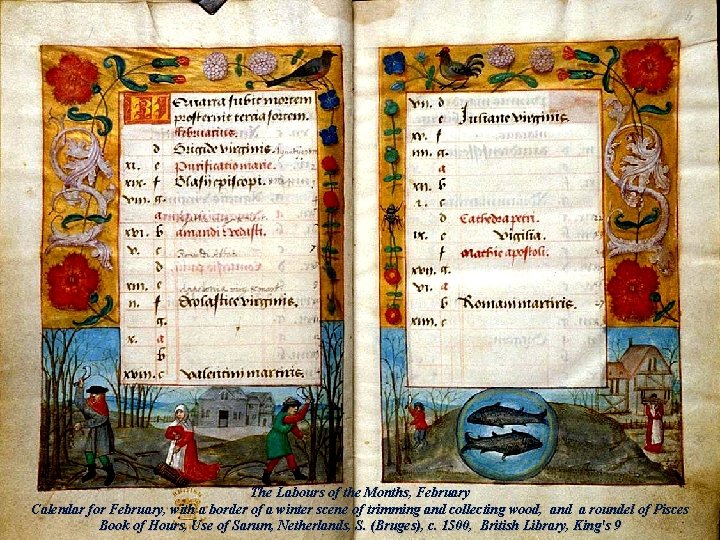 Quarta subit mortem
prosternit tercia fortem.
februarius.
d Brigide virginis.
xi. e Purificatio marie.
xix. f Blasii episcopi.
viii. g.
a
xvi. b amandi vedasti.
v. c
d
xiii. e
ii. f Scolastice virginis.
g.
x. a
b
xviii. c valentini martiris.
vii. d
e Juliane virginis.
xv. f
iiii. g.
a
xii. b
i. c
d Cathedra petri.
ix. e vigilia.
f Mathie apostoli.
xvii. g.
vi. a
b Romani martiris.
xiiii. c
The Labours of the Months, February
Calendar for February, with a border of a winter scene of trimming and collecting wood, and a roundel of Pisces
Book of Hours, Use of Sarum, Netherlands, S. (Bruges), c. 1500, British Library, King's 9